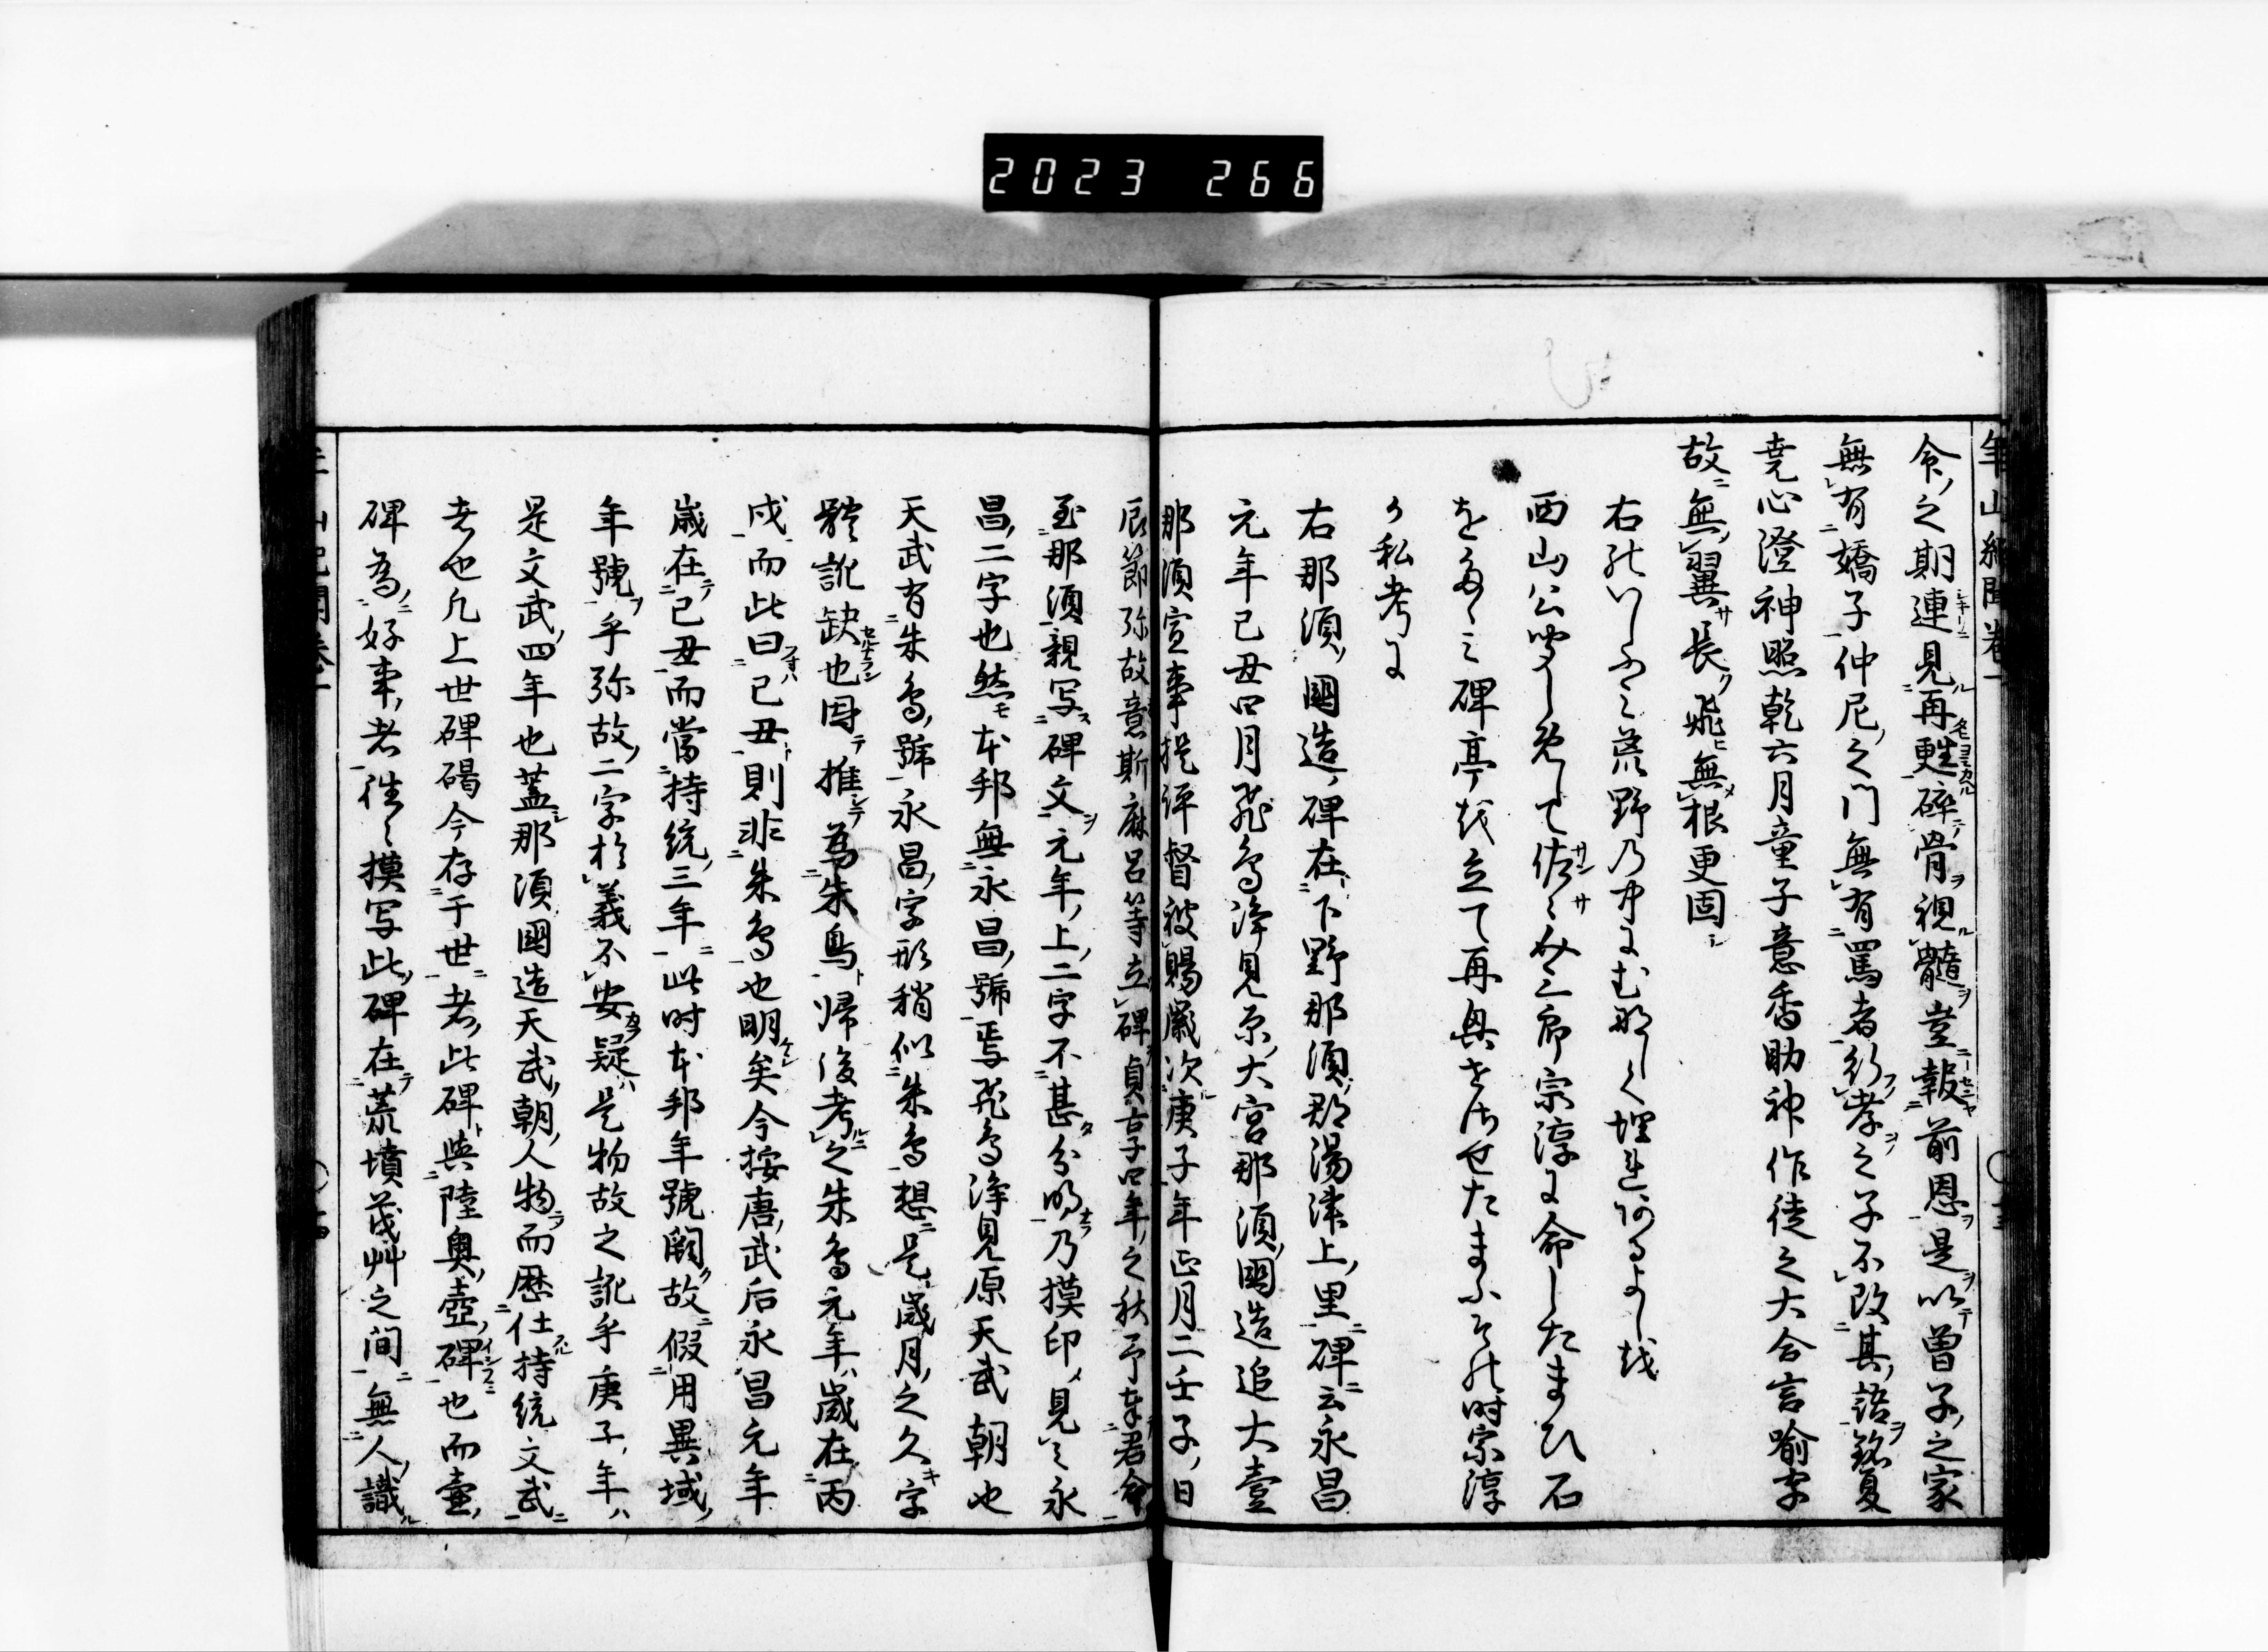 2023 266
年山紀聞卷一
命之期連見再甦碎骨視髓豈報前恩是以曾子之家
無有嬌子仲尼之門無有罵者行孝之子不改其語銘夏
堯心澄神照乾六月童子意香助神作徒之大合言喩字
故無翼長飛無根更固
右のいしふミ荒野の中にむなしく埋れ阿るよし越
西山公聞しめして佐々介三郎宗淳に命したまひ石
をたゝミ碑亭越立て再興せさせたまふその時宗淳
か私考に
右那須國造碑在下野那須郡湯津上里碑云永昌
元年己丑四月飛鳥淨見原大宮那須國造追大壹
那須宣事提評督被賜歲次庚子年正月二壬子日
辰節弥故意斯麻呂等立碑貞享四年之秋予奉君命
至那須親写碑文元年上二字不甚分明乃摸印見之永
昌二字也然本邦無永昌號焉飛鳥淨見原天武朝也
天武有朱鳥號永昌字形稍似朱鳥想是歲月之久字
體訛缺也因推為朱鳥帰後考之朱鳥元年歲在丙
戌而此曰己丑則非朱鳥也明矣今按唐武后永昌元年
歲在己丑而當持統三年此时本邦年號闕故假用異域
年號乎弥故二字於義不安疑是物故之訛乎庚子年
是文武四年也蓋那須國造天武朝人物而歷仕持統文武
者也凡上世碑碣今存于世者此碑與陸奧壺碑也而壺
碑為好事者往々摸写此碑在荒墳茂艸之间無人識
年山紀聞卷一